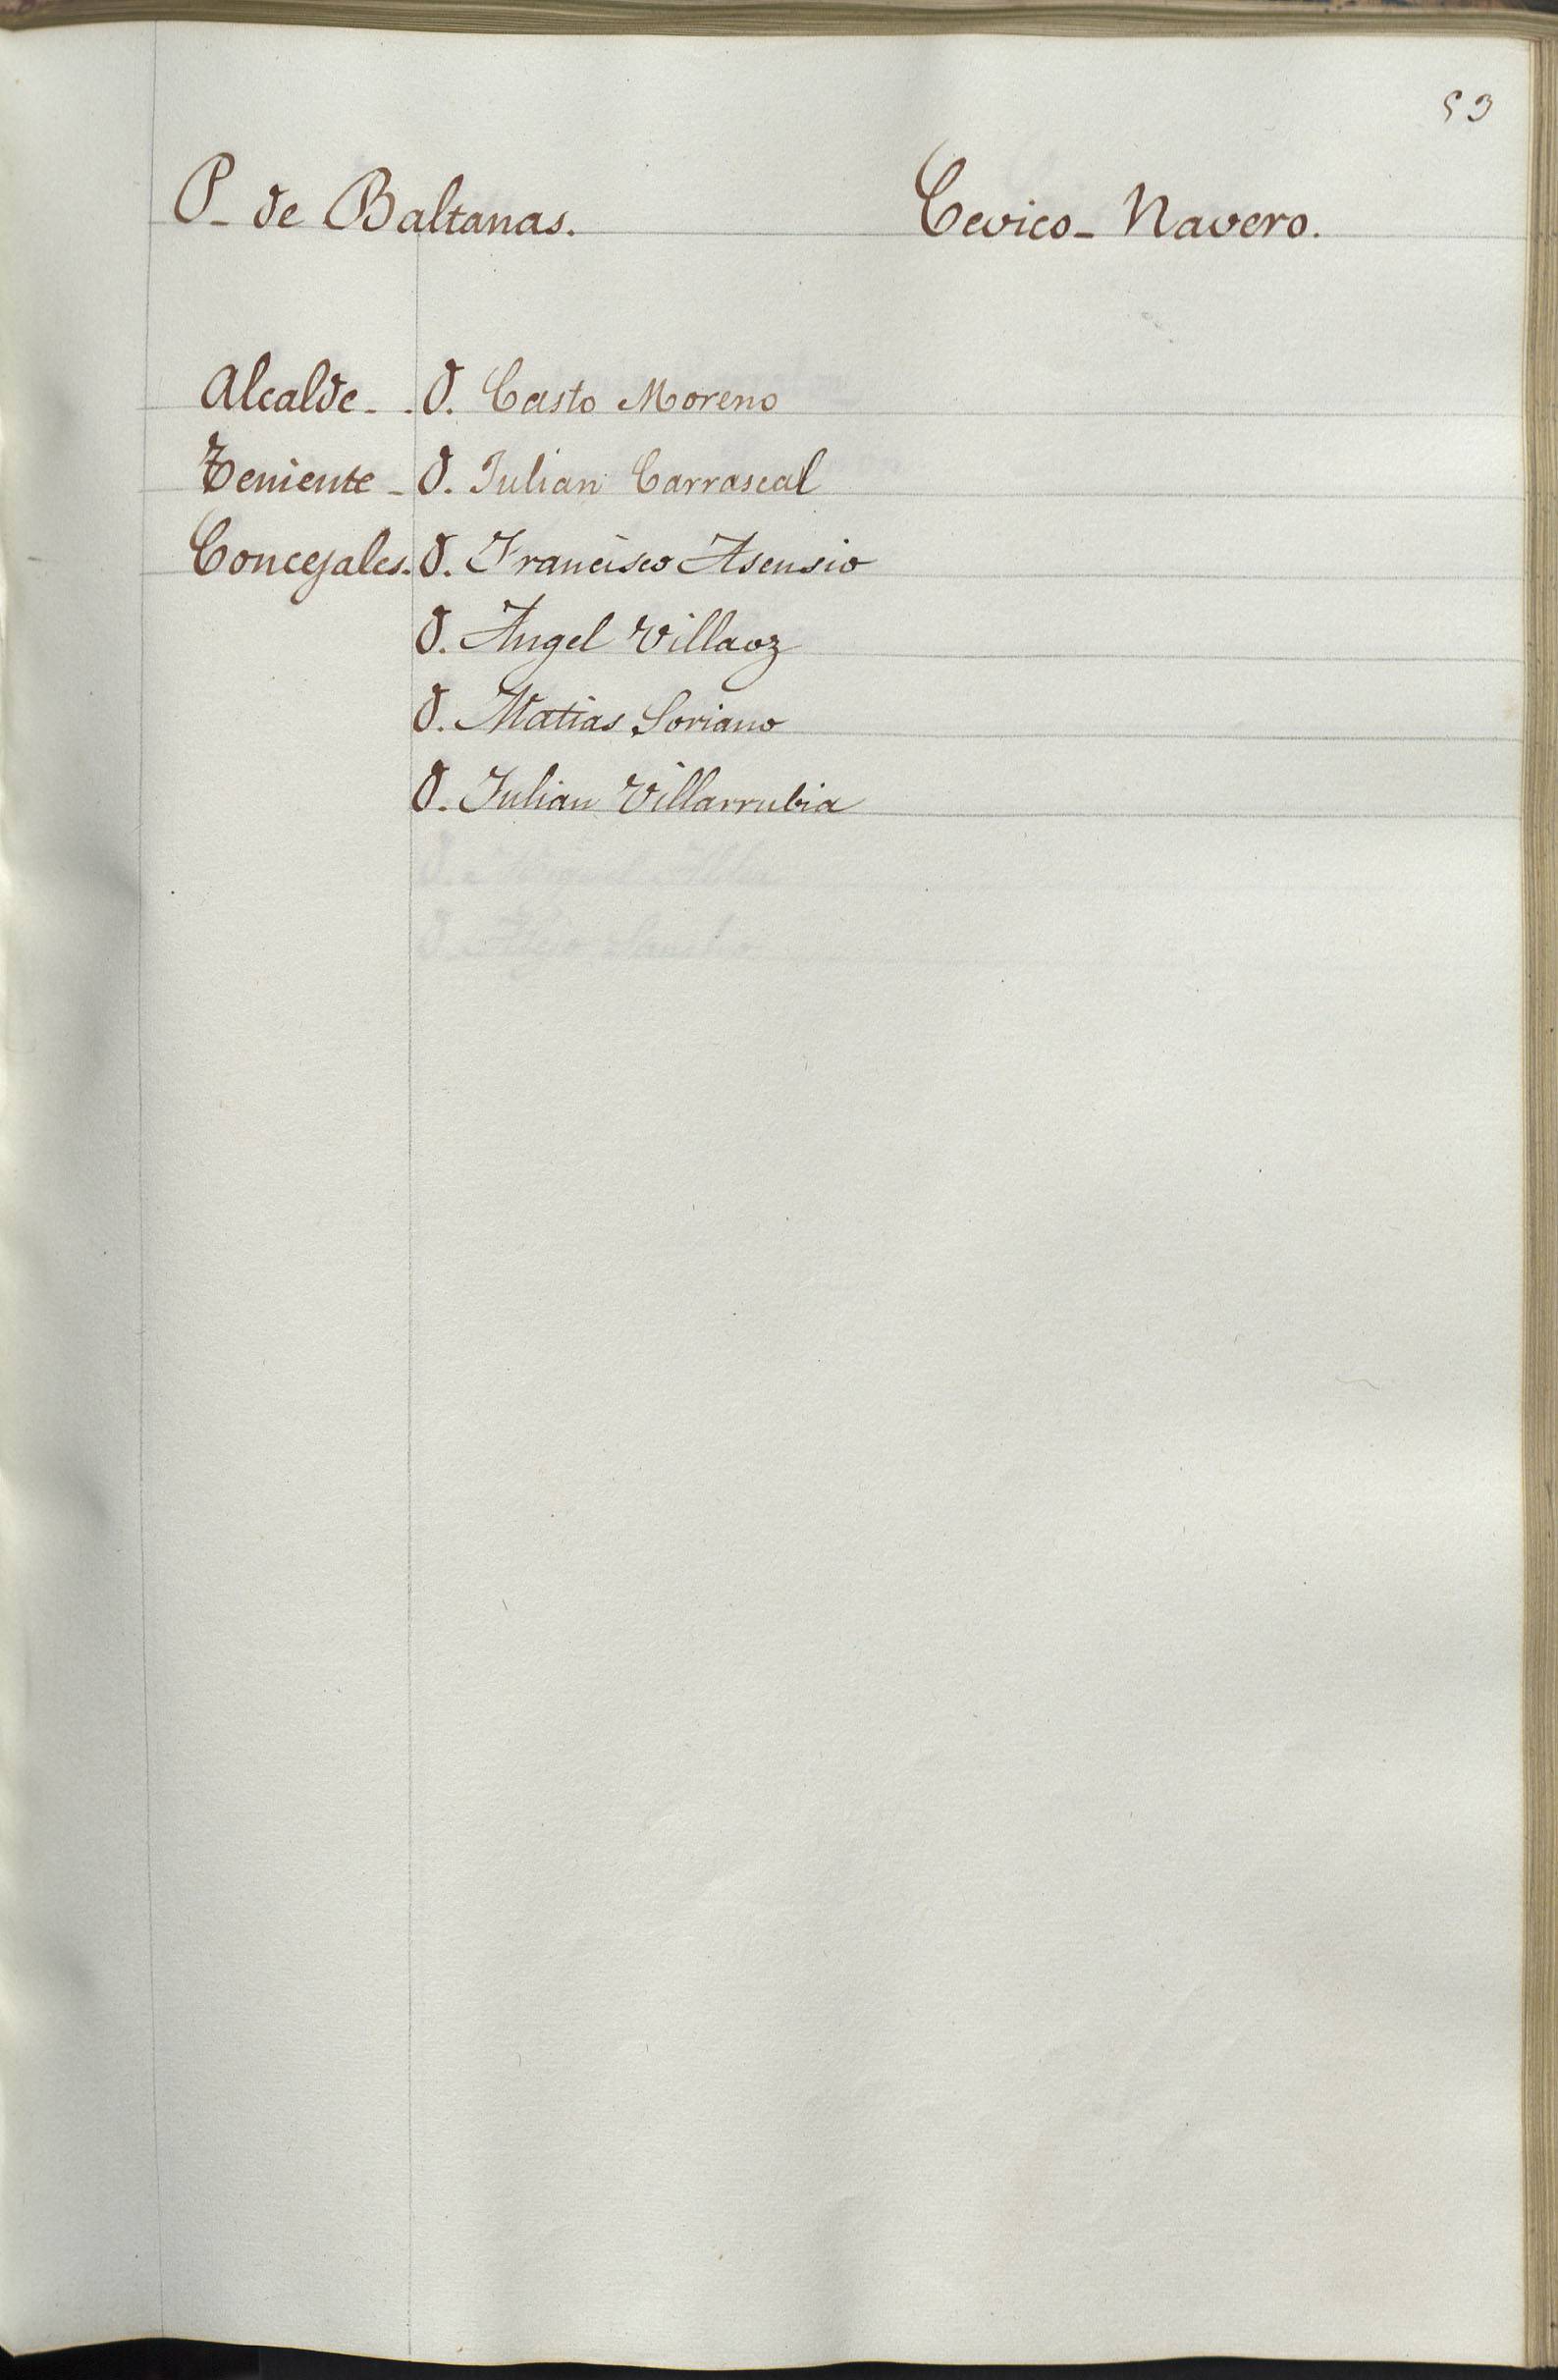 53
P- de Baltanas. Cevico- Navero.
Alcalde- - D. Casto Moreno
Teniente - D. Julian Carrascal
Concejales. D. Francisco Asensio
D. Angel Villaoz
D. Matias Soriano
D. Julian Villarrubia